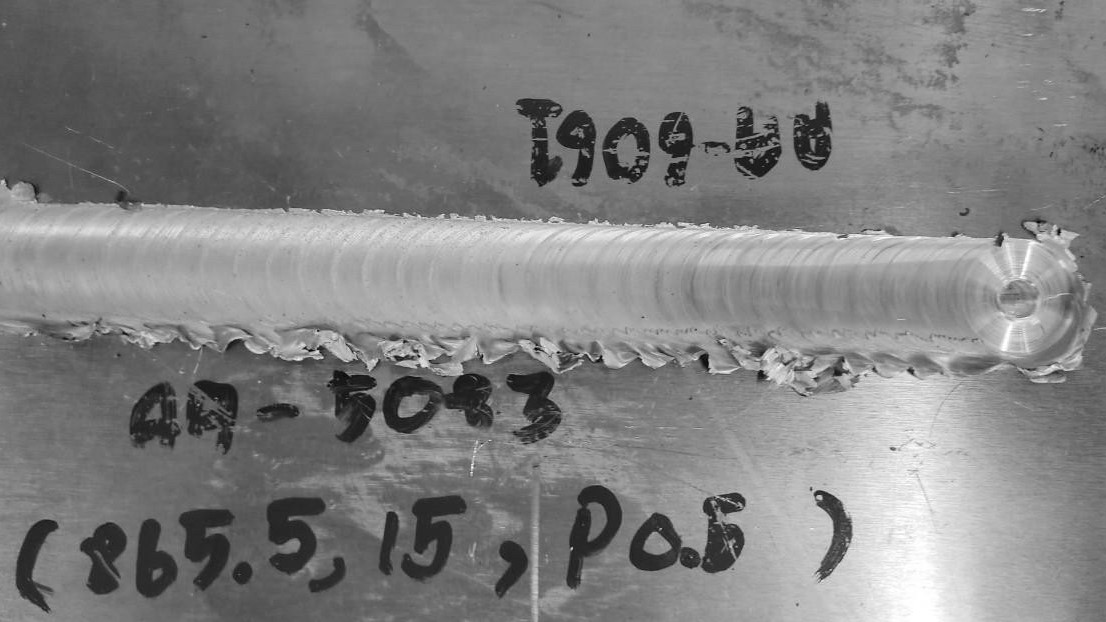 AA-6061
AA-5083
(865.5, 15, P0.5 )